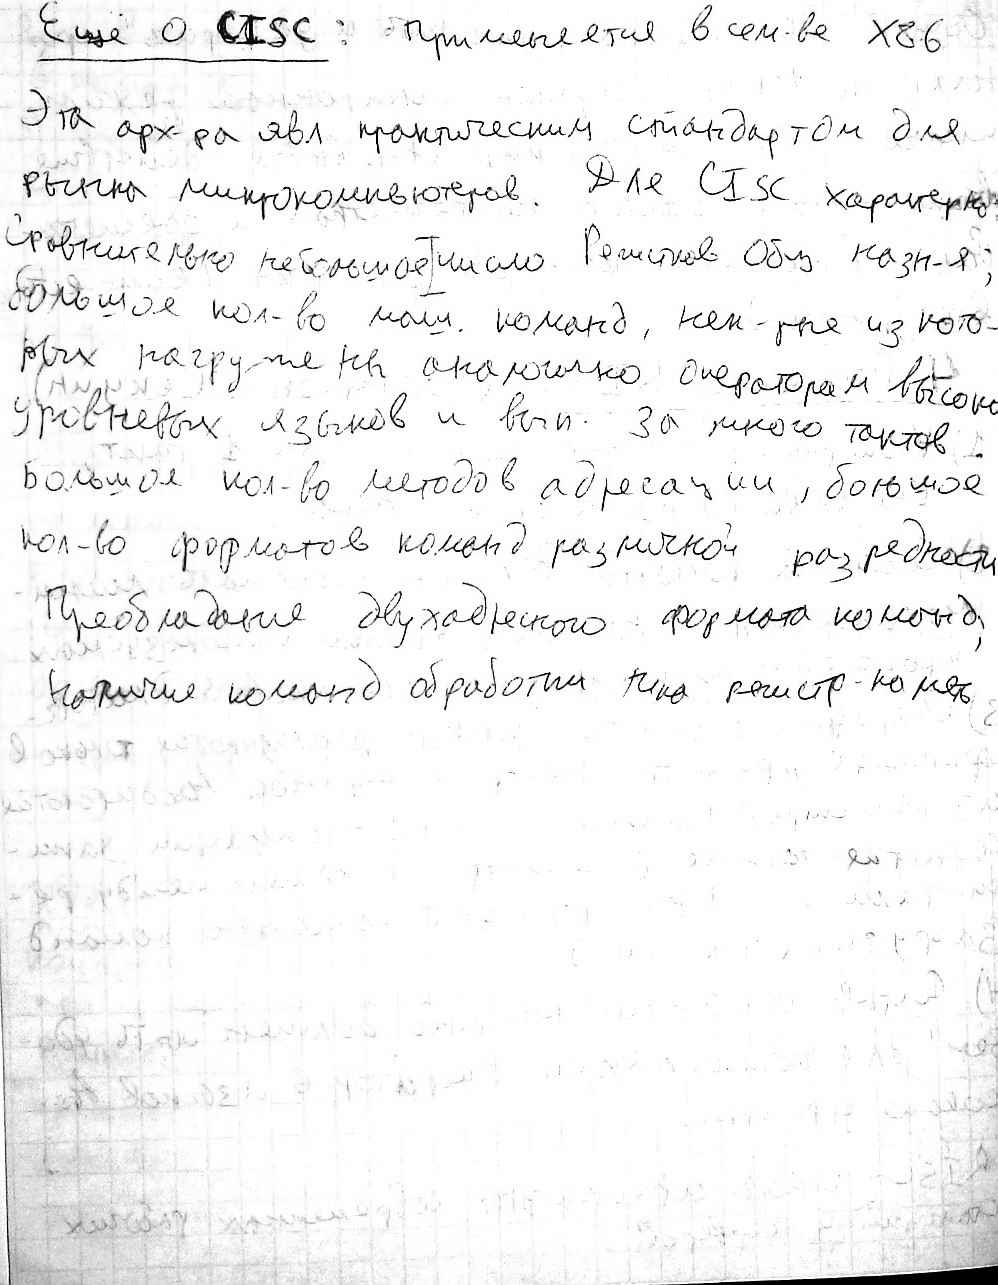 Ещё о CISC: Применяется в сем-ве X86
Эта арх-ра явл практическим стандартом для
рынка микрокомпьютеров. Для CISC характерно
сравнительно небольшое число Регистров Общ назн-я,
большое кол-во маш. команд, нек-рые из кото-
рых нагружены аналогично операторам высоко
уровневых языков и вып. за много тактов.
Большое кол-во методов адресации, большое
кол-во форматов команд различной разрядности
Преобладание двухадресного формата команд,
наличие команд обработки типа регистр-память